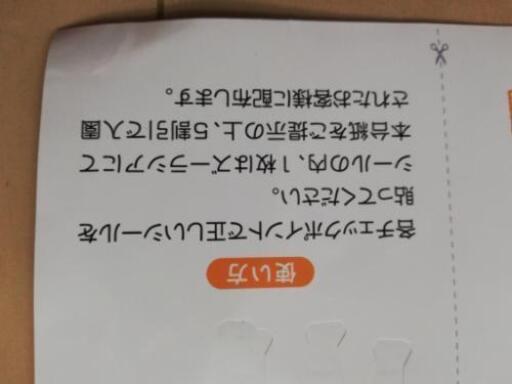 使い方
各チェックポイントで正しいシールを
貼ってください。
シールの内、1枚はズーラシアにて
本台紙をご提示の上、5割引で入園
されたお客様に配布します。